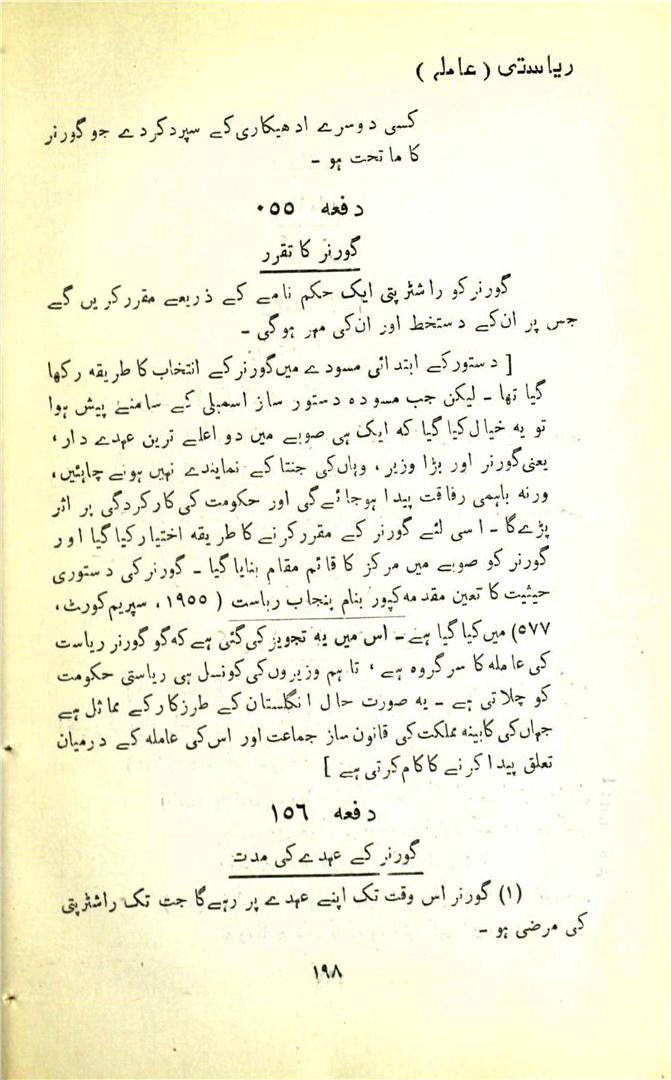 ریاستی ( عاملہ )
کسی دوسرے ادھیکاری کے سپرد کر دے جو گورنر
کا ماتحت ہو ۔
دفعہ ۰۵۵
گورنر کا تقرر
گورنر کو راشٹرپتی ایک حکم نامے کے ذریعے مقرر کریں گے
جس پر ان کے دستخط اور ان کی مہر ہوگی ۔
[ دستور کے ابتدائی مسودے میں گورنر کے انتخاب کا طریقہ رکھا
گیا تھا ۔ لیکن جب مسودہ دستور ساز اسمبلی کے سامنے پیش ہوا
تو یہ خیال کیا گیا کہ ایک ہی صوبے میں دو اعلےٰ ترین عہدے دار ،
یعنی گورنر اور بڑا وزیر ، وہاں کی جنتا کے نمایندے نہیں ہونے چاہئیں ،
ورنہ باہمی رفاقت پیدا ہو جائے گی اور حکومت کی کارکردگی پر اثر
پڑے گا ۔ اسی لئے گورنر کے مقرر کرنے کا طریقہ اختیار کیا گیا اور
گورنر کو صوبے میں مرکز کا قائم مقام بنایا گیا ۔ گورنر کی دستوری
حیثیت کا تعین مقدمہ کپور بنام پنجاب ریاست ( ۱۹۵۵ ، سپریم کورٹ ،
۵۷۷) میں کیا گیا ہے ۔ اس میں یہ تجویز کی گئی ہے کہ گو گورنر ریاست
کی عاملہ کا سرگروہ ہے ، تاہم وزیروں کی کونسل ہی ریاستی حکومت
کو چلاتی ہے ۔ یہ صورت حال انگلستان کے طرز کار کے مماثل ہے
جہاں کی کابینہ مملکت کی قانون ساز جماعت اور اس کی عاملہ کے درمیان
تعلق پیدا کرنے کا کام کرتی ہے ]
دفعہ ۱۵٦
گورنر کے عہدے کی مدت
(۱) گورنر اس وقت تک اپنے عہدے پر رہے گا جت تک راشٹرپتی
کی مرضی ہو ۔
۱۹۸